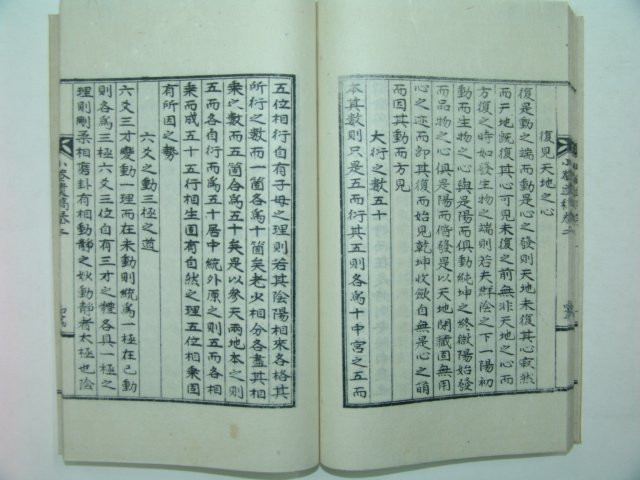 復見天地之心
復是動之端而動是心之發則天地未復其心寂然
而天地旣復其心可見未復之前無非天地之心而
方復之時如發生物之端則若夫群陰之下一陽初
動而生物之心與是陽而俱動純坤之終微陽始發
而品物之心俱是陽而偕發是以天地閉藏固無用
心之迹而卽其復而始見乾坤收斂自無是心之萌
而因其動而方見
大衍之數五十
本其數則只是五而衍其五則各爲十中宮之五而
五位相衍自有子母之理則若其陰陽相來各格其
所衍之數而一箇各爲十箇矣老少相分各盡其相
乘之數而五箇合爲五十矣是以參天兩地本之則
五而各自衍而爲五十居中統外原之則五而各相
乘而成五十五行相生固有自然之理五位相乘固
有所因之勢
六爻之動三極之道
六爻三才變動一理而在未動則統爲一極在已動
則各爲三極六爻三位自有三才之體各具一極之
理則剛柔相磨卦有相動靜之妙動靜者太極也陰